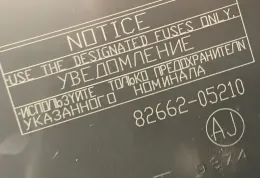 NOTICE
USE THE DESIGNATED FUSES ONLY.
УВЕДОМЛЕНИЕ
-ИСПОЛЬЗУЙТЕ ТОЛЬКО ПРЕДОХРАНИТЕЛИ
УКАЗАННОГО НОМИНАЛА
82662-05210
AJ